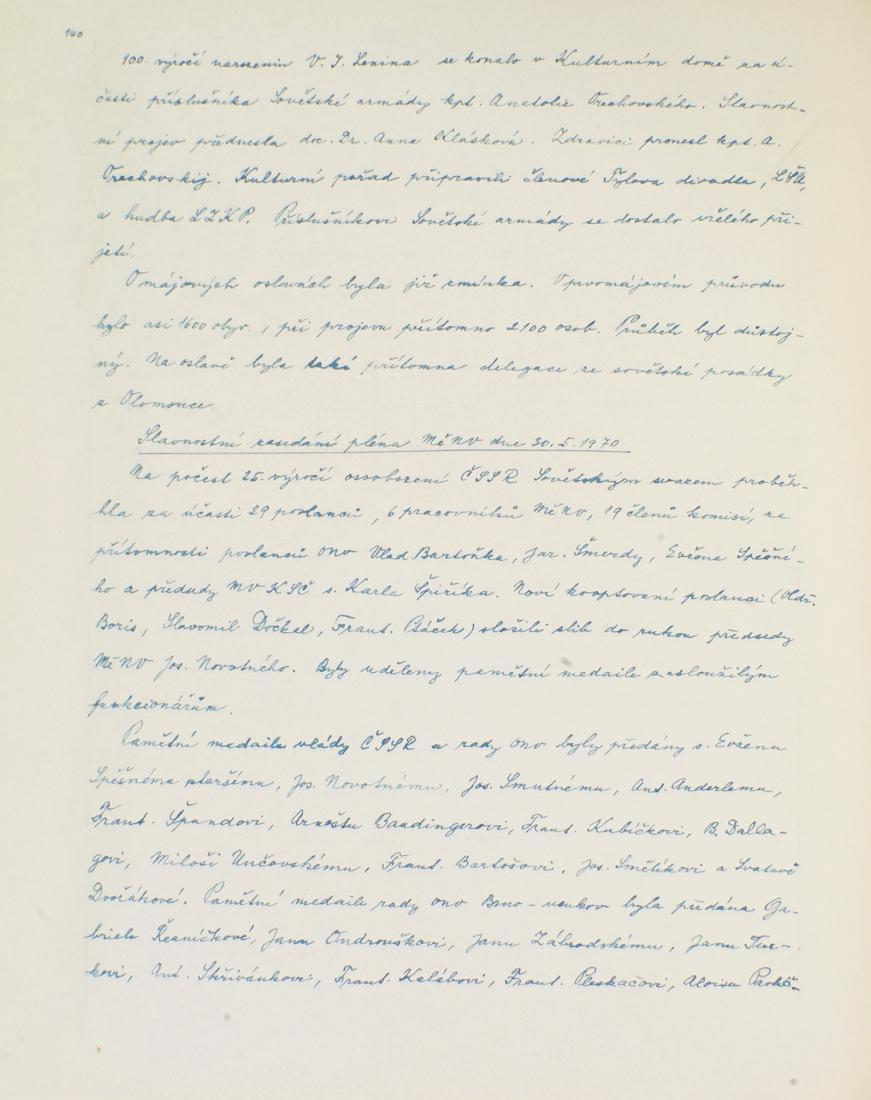 140
100. výročí narozenin V. I. Lenina se konalo v Kulturním domě za ú-
časti příslušníka Sovětské armády kpt. Anatolie Orechovského. Slavnost-
ní projev přednesla doc. Dr. Anna Klásková. Zdravici pronesl kpt. A.
Orechovskij. Kulturní pořad připravili členové Tylova divadla, LŠU,
a hudba LZKP. Příslušníkovi Sovětské armády se dostalo vřelého při-
jetí.
O májových oslavách byla již zmínka. V prvomájovém průvodu
bylo asi 1600 obyv., při projevu přítomno 2100 osob. Průběh byl důstoj-
ný. Na oslavě byla také přítomna delegace ze sovětské posádky
z Olomouce.
Slavnostní zasedání pléna MěNV dne 30. 5. 1970
Na počest 25. výročí osvobození ČSSR Sovětským svazem proběh-
hla za účasti 29 poslanců, 6 pracovníků MěNV, 19 členů komisí, za
přítomnosti poslanců ONV Vlad. Bartoňka, Jar. Šmerdy, Evžena Spěšné-
ho a předsedy MV KSČ s. Karla Špiříka. Noví kooptovaní poslanci (Oldř.
Boris, Slavomil Dočkal, Frant. Ptáček) složili slib do rukou předsedy
MěNV Jos. Novotného. Byly uděleny pamětní medaile zasloužilým
funkcionářům.
Pamětní medaile vlády ČSSR a rady ONV byly předány s. Evženu
Spěšnému staršímu, Jos. Novotnému, Jos. Smutnému, Ant. Anderlemu,
Frant. Špundovi, Arnoštu Bandingerovi, Frant. Kubíčkovi, B. Dalla-
govi, Miloši Unčovskému, Frant. Bartošovi, Jos. Smětikovi a Svatavě
Dvořákové. Pamětní medaile rady ONV Brno-venkov byla předána Ga-
briele Řezníčkové, Janu Ondrouškovi, Janu Zábrodskému, Janu Tur-
kovi, Ant. Skřivánkovi, Frant. Kalábovi, Frant. Pleskačovi, Aloisu